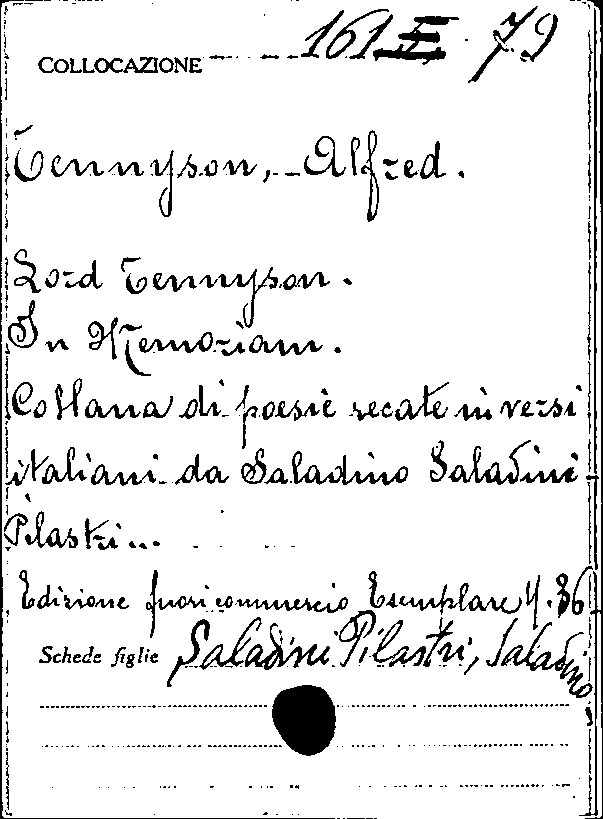 COLLOCAZIONE 161 E 79
Tennyson, Alfred.
Lord Tennyson.
In Memoriam.
Collana di poesie recate in versi
italiani da Saladino Saladini-
Pilastri...
Edizione fuori commercio Esemplare N. 36
Schede figlie Saladini Pilastri, Saladino